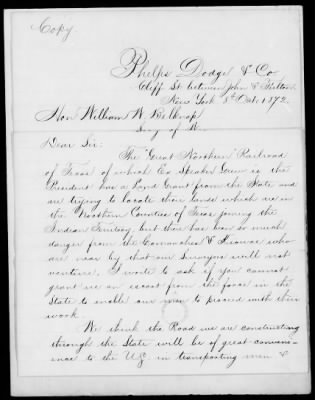 Copy.
Phelps Dodge & Co
Cliff St. between John & Fulton
New York 8th Oct. 1872.
Hon William W. Belknap
Secy of W.
Dear Sir:
The "Great Northern" Railroad
of Texas of which Ex Speaker Grow is the
President has a Land Grant from the State and
are trying to locate their lands which are in
the Northern Counties of Texas joining the
Indian Territory, but there has been so much
danger from the Comanches & Kiowas who
are near by that our Surveyors will not
venture. I write to ask if you cannot
grant us an escort from the force in the
State to enable our men to proceed with their
work.
We think the Road we are constructing
through the State will be of great conveni-
ence to the U.S. in transporting men &